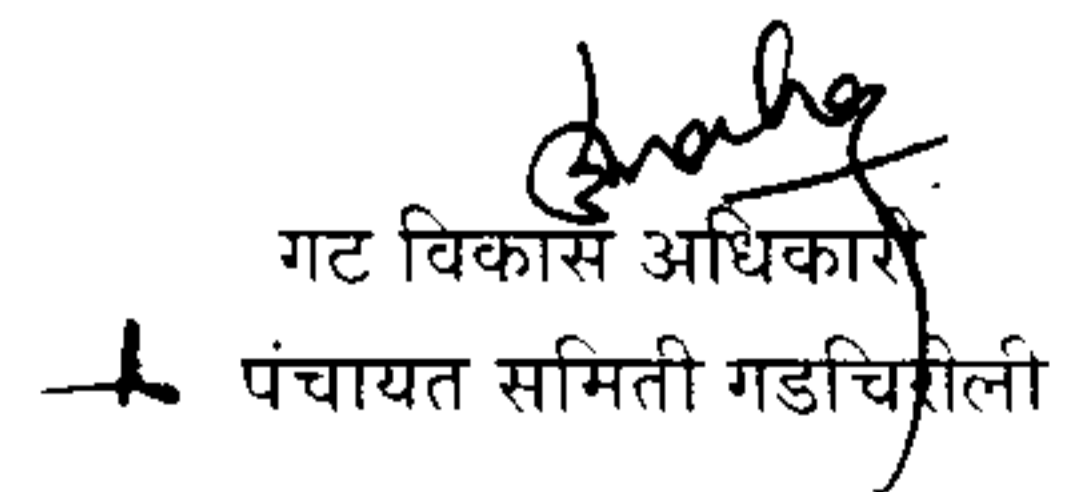 गट विकास अधिकारी
पंचायत समिती गडचिरोली